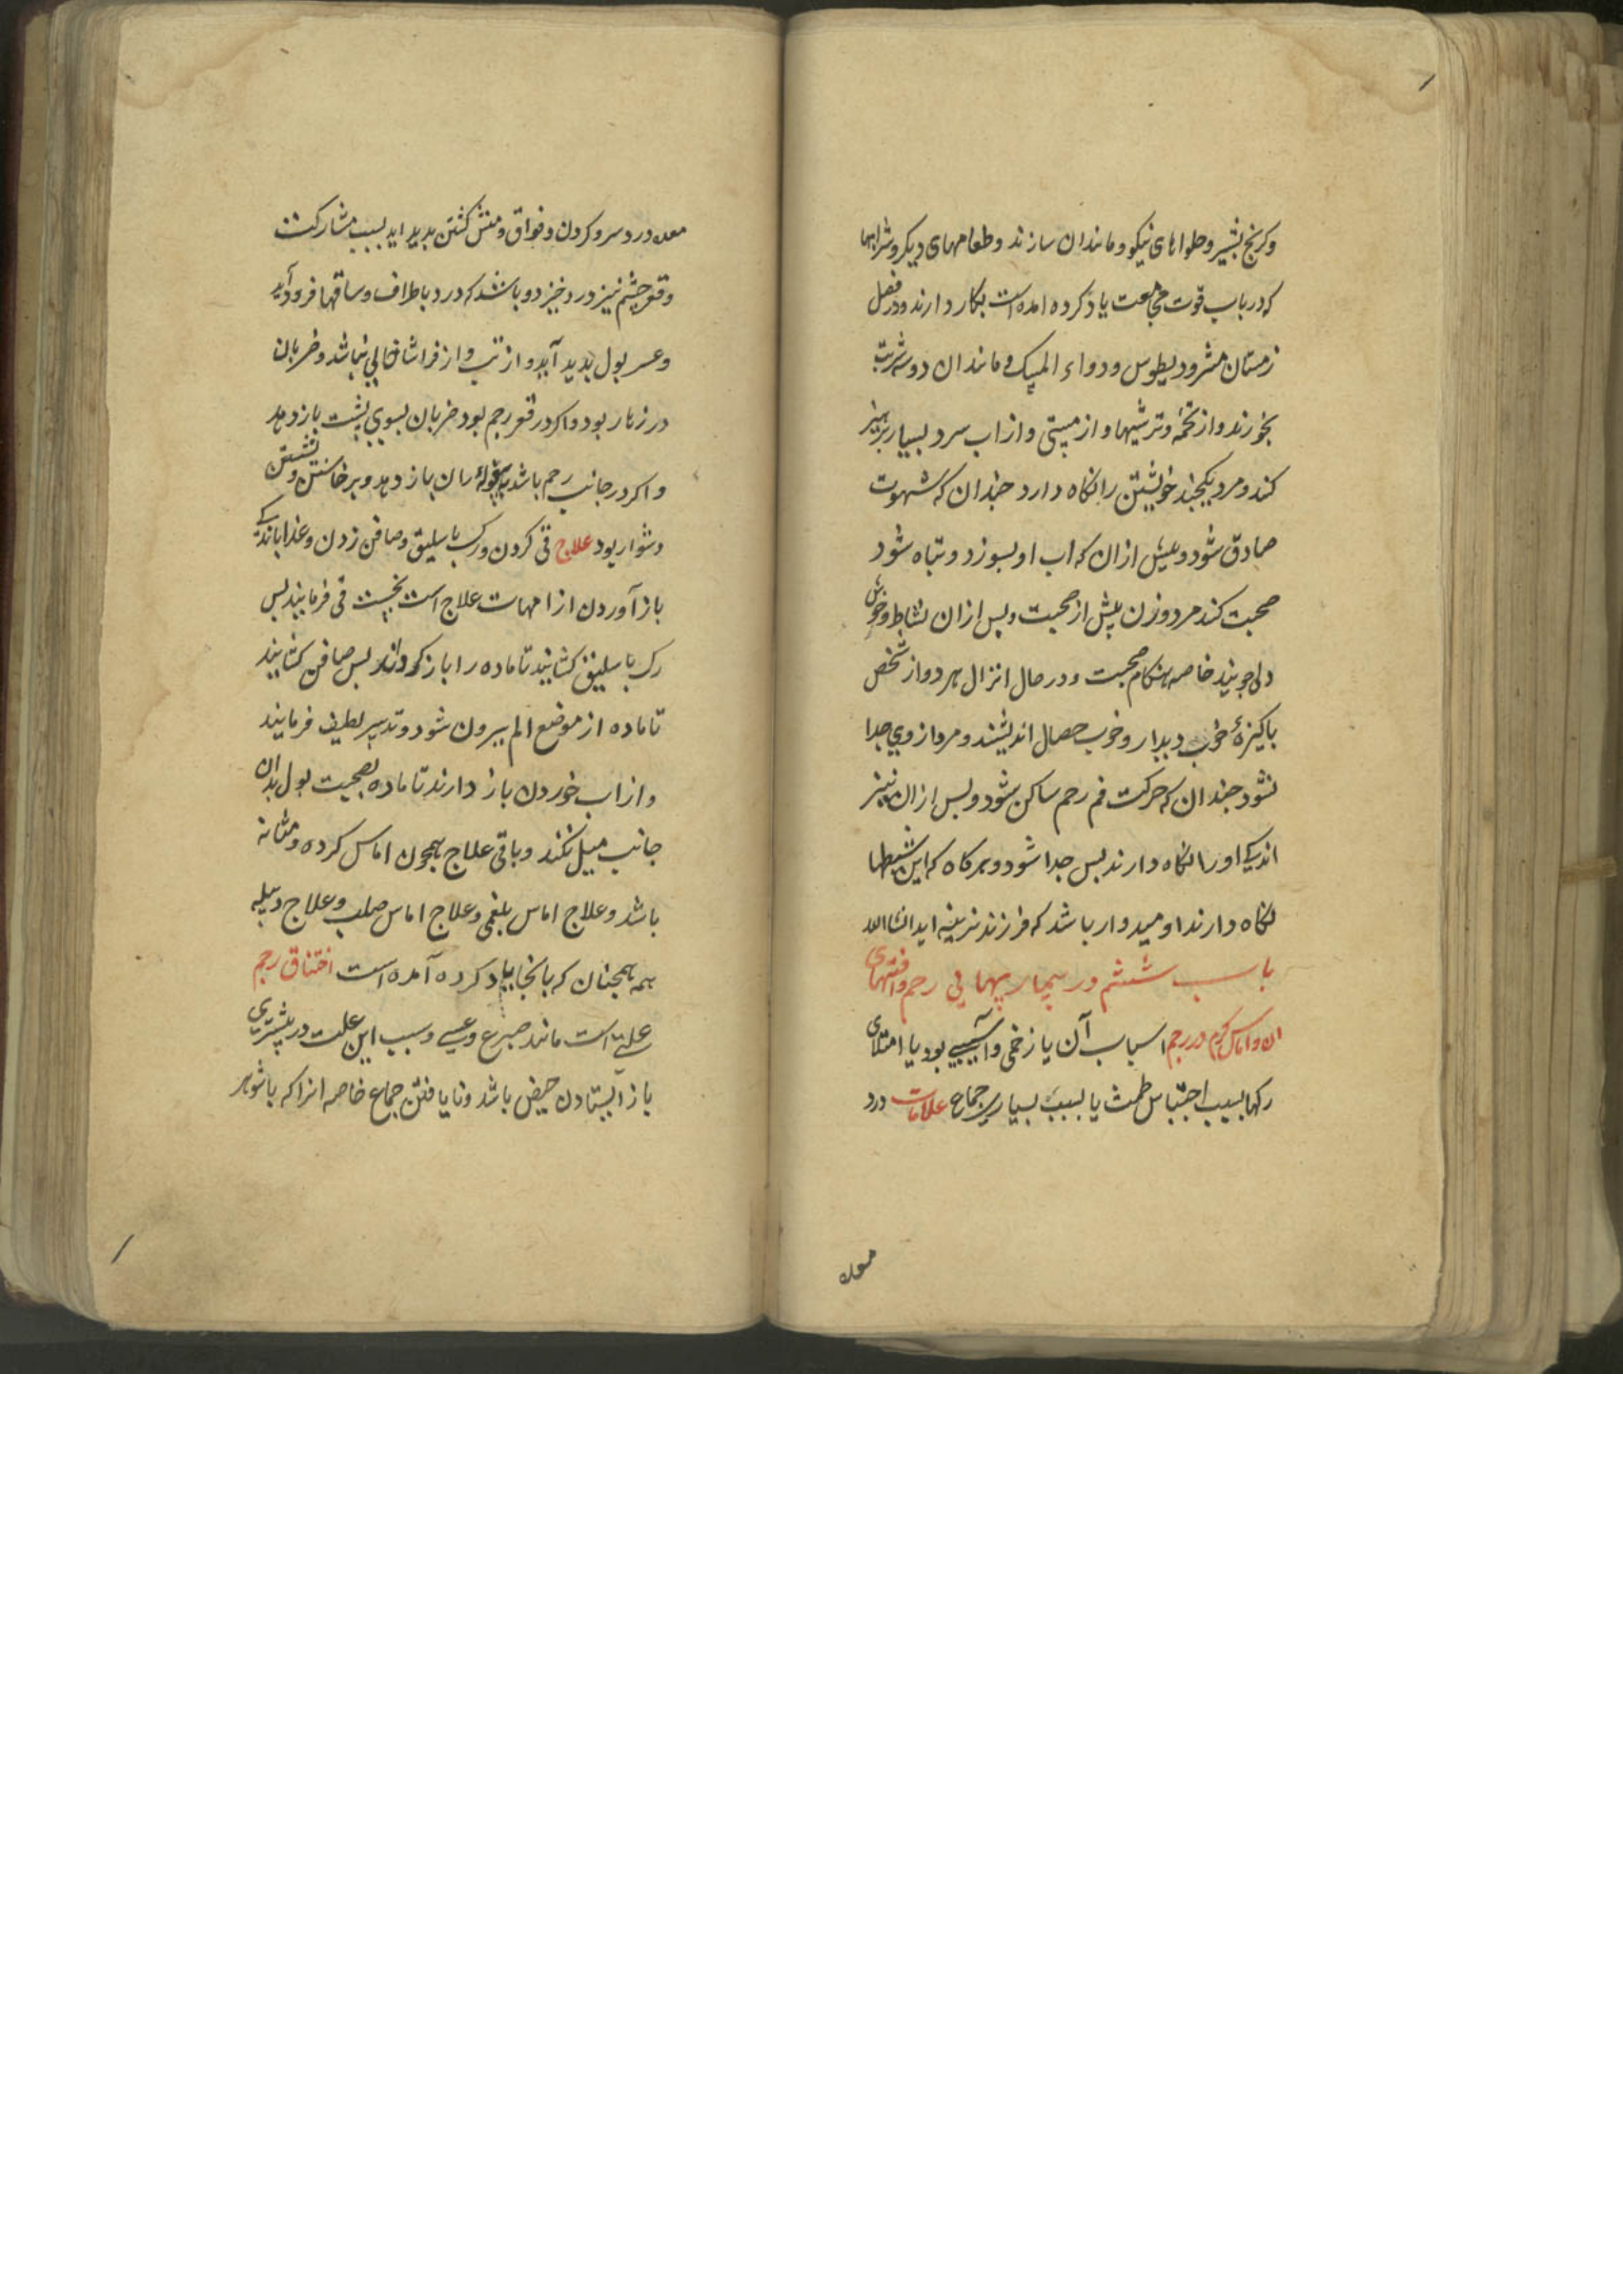 وکرنج بشیر و حلواهای نیکو و مانند ان سازند و طعامهای دیکر و شرابها
که در باب قوت مجامعت یاد کرده امده است بکار دارند و در فصل
زمستان مثرودیطوس و دواء المسک و مانند ان دو سه شربت
بخورند و از تخمه و ترشیها و از مستی و از اب سرد بسیار پرهیز
کند و مرد یکچند خویشتن را نکاه دارد جندان که شهوت
صادق شود و بیش ازان که اب او بسوزد و تباه شود
صحبت کند مرد و زن پیش از صحبت و پس ازان نشاط و خوش
دلی جویند خاصه هنکام صحبت و در حال انزال هر دو از شخص
باکیزهٔ خوب دیدار و خوب خصال اندیشند و مرد از وی جدا
نشود جندان که حرکت فم رحم ساکن شود و بس ازان نیز
اندکی او را نکاه دارند بس جدا شود و هرکاه که این شرطها
نکاه دارند اومیدوار باشد که فرزند نرینه اید ان شاالله
باب ششم در بیماریهایی رحم و افتهای
ان و اماس کرم در رحم اسباب آن یا زخمی و اسیبی بود یا امتلای
رکها بسبب احتباس طمث یا بسبب بسیاری جماع علامات درد
معده
معده و درد سر و کردن و فواق و منش کشتن بدید اید بسبب مشارکت
و قعر جشم نیز درد خیزد و باشد که درد باطراف و ساقها فرود آید
و عسر بول بدید آید و از تب و از فراشا خالی نباشد و ضربان
در زهار بود و اکر در قعر رحم بود ضربان بسوی پشت باز دهد
و اکر در جانب رحم باشد به بیغولهٔ ران باز دهد و برخاستن و نشستن
دشوار بود علاج قی کردن و رک باسلیق و صافن زدن و غذا باندکی
باز آوردن از امهات علاج است نخست قی فرمایند بس
رک باسلیق کشایند تا ماده را باز کرداند بس صافن کشایند
تا ماده از موضع الم بیرون شود و تدبیر لطیف فرمایند
و از اب خوردن باز دارند تا ماده بصحبت بول بدان
جانب میل نکند و باقی علاج همجون اماس کرده و مثانه
باشد و علاج اماس بلغمی و علاج اماس صلب و علاج دبیله
همه همجنان که بانجا یاد کرده آمده است اختناق رحم
علتی است مانند صرع و غشی و سبب این علت در بیشتری
باز ایستادن حیض باشد و نایافتن جماع خاصه انرا که با شوهر